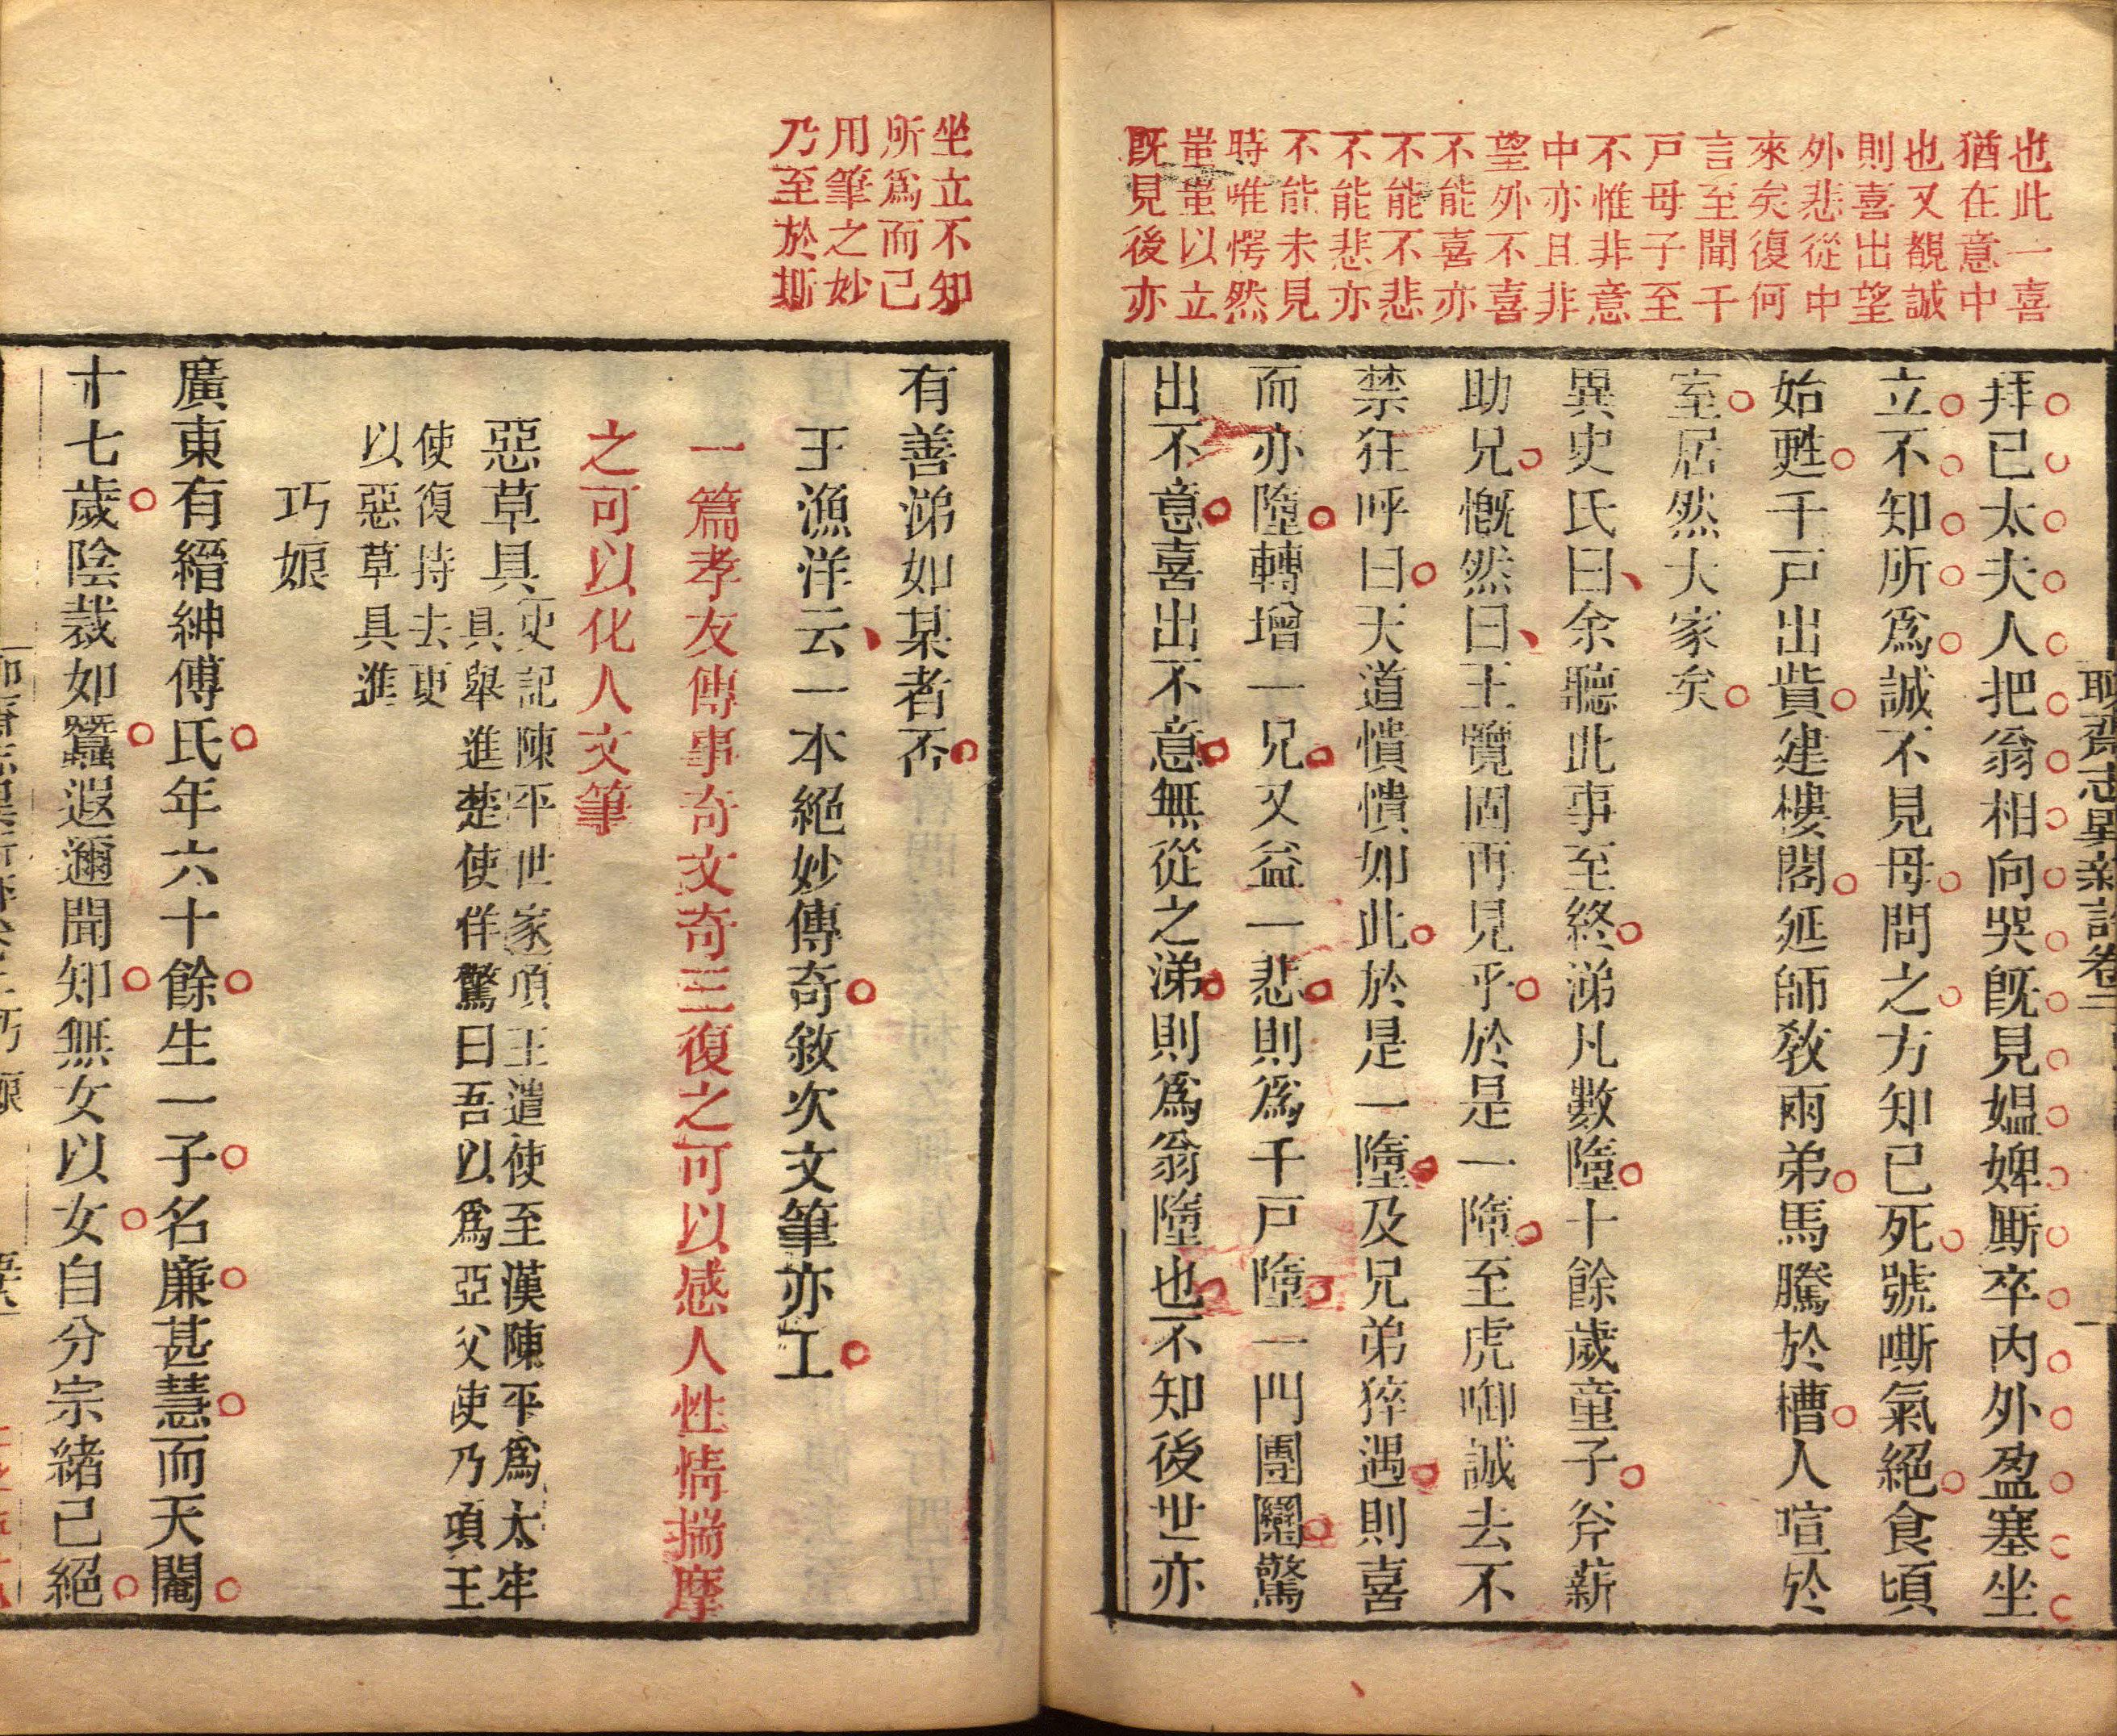 聊齋志異新評卷二
也此一喜
猶在意中
也又覩誠
則喜出望
外悲從中
來矣復何
言至聞千
戸母子至
不惟非意
中亦且非
望外不喜
不能喜亦
不能不悲
不能悲亦
不能未見
時唯愕然
蚩蚩以立
既見後亦
拜已太夫人把翁相向哭既見媪婢厮卒内外盈塞坐
立不知所爲誠不見母問之方知已死號嘶氣絕食頃
始甦千戸出貲建樓閣延師教兩弟馬騰於槽人喧於
室居然大家矣
異史氏曰余聽此事至終涕凡數墮十餘歲童子斧薪
助兄慨然曰王覽固再見乎於是一墮至虎啣誠去不
禁狂呼曰天道憒憒如此於是一墮及兄弟猝遇則喜
而亦墮轉增一兄又益一悲則爲千戸墮一門團圞驚
出不意喜出不意無從之涕則爲翁墮也不知後世亦
坐立不知
所爲而已
用筆之妙
乃至於斯
有善涕如某者否
王漁洋云一本絕妙傳奇敘次文筆亦工
一篇孝友傳事奇文奇三復之可以感人性情揣摩
之可以化人文筆
惡草具史記陳平世家項王遣使至漢陳平爲太牢
具舉進楚使佯驚曰吾以爲亞父使乃項王
使復持去更
以惡草具進
巧娘
廣東有縉紳傅氏年六十餘生一子名廉甚慧而天閹
十七歲陰裁如蠶遐邇聞知無女以女自分宗緒已絕